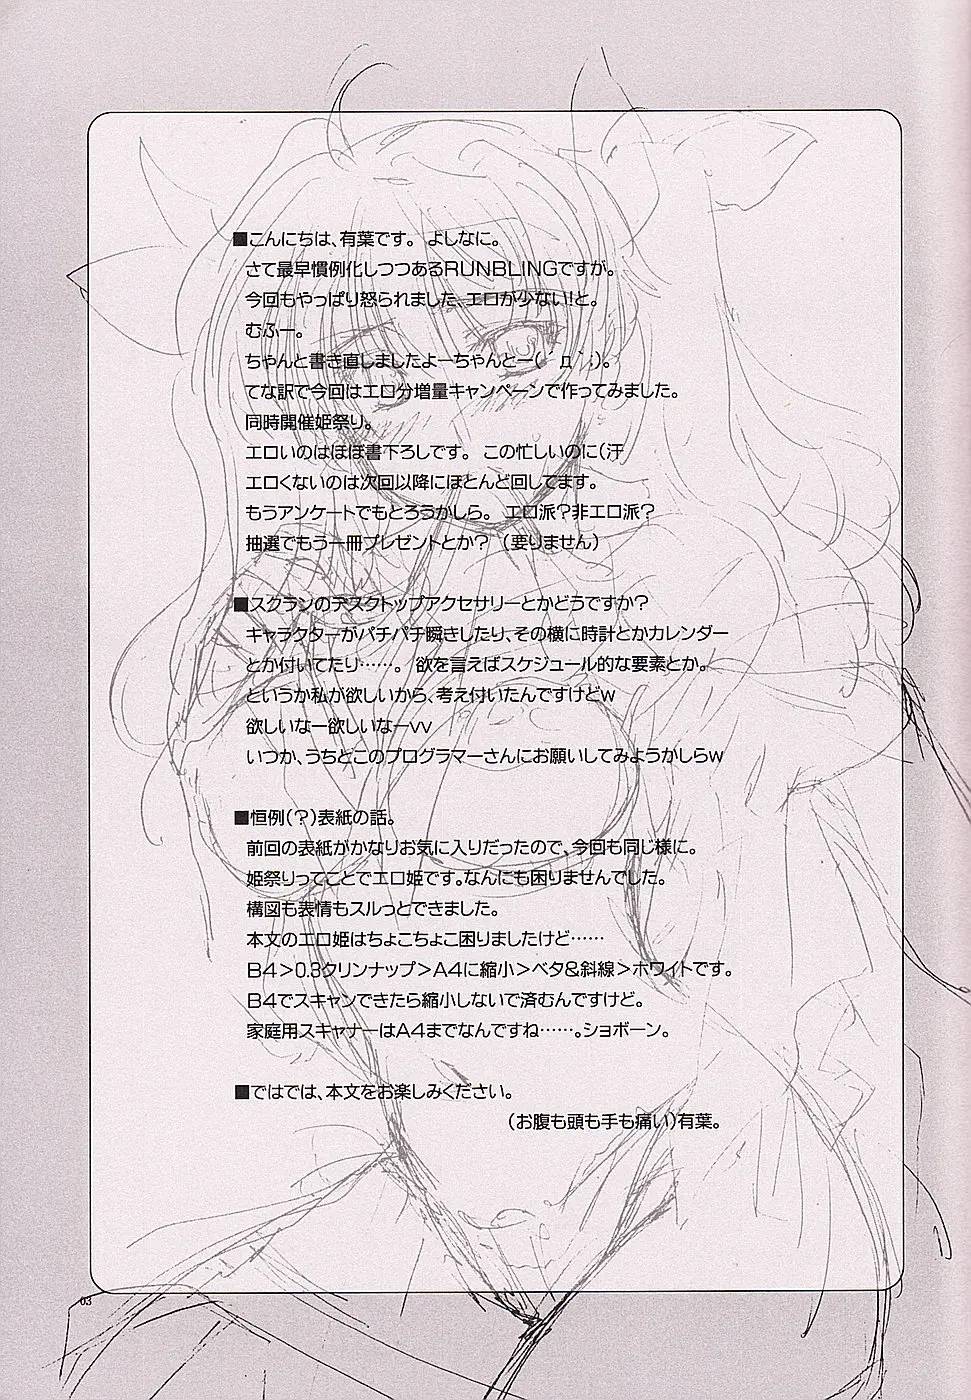 ■こんにちは、有葉です。 よしなに。
さて最早慣例化しつつあるRUNBLINGですが。
今回もやっぱり怒られました、エロが少ない!と。
むふー。
ちゃんと書き直しましたよーちゃんとー(;´д`;)。
てな訳で今回はエロ分増量キャンペーンで作ってみました。
同時開催姫祭り。
エロいのはほぼ書下ろしです。 この忙しいのに(汗
エロくないのは次回以降にほとんど回してます。
もうアンケートでもとろうかしら。 エロ派?非エロ派?
抽選でもう一冊プレゼントとか? (要りません)
■スクランのデスクトップアクセサリーとかどうですか?
キャラクターがパチパチ瞬きしたり、その横に時計とかカレンダー
とか付いてたり……。 欲を言えばスケジュール的な要素とか。
というか私が欲しいから、考え付いたんですけどw
欲しいなー欲しいなーvv
いつか、うちとこのプログラマーさんにお願いしてみようかしらw
■恒例(?)表紙の話。
前回の表紙がかなりお気に入りだったので、今回も同じ様に。
姫祭りってことでエロ姫です。なんにも困りませんでした。
構図も表情もスルっとできました。
本文のエロ姫はちょこちょこ困りましたけど……
B4>0.3クリンナップ>A4に縮小>ベタ&斜線>ホワイトです。
B4でスキャンできたら縮小しないで済むんですけど。
家庭用スキャナーはA4までなんですね……。ショボーン。
■ではでは、本文をお楽しみください。
(お腹も頭も手も痛い)有葉。
03